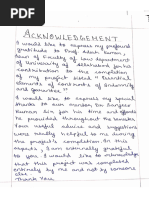 ACKNOWLEDGEMENT
I would like to express my profound
gratitude to Prof. Alok Kumar,
Dean of Faculty of Law department
of University of Allahabad for his
contribution to the completion
of my project titled Essential
elements of contracts of indemnity
and guarantee?
I would like to express my special
thanks to our mentor
Kumar Sir for his time and efforts
he provided throughout the semester
Your useful advice and suggestions
were really helpful to me during
the project's completion. In this
aspect, I am eternally grateful
to you. I would like to acknowledge
that this project was completed
entirely by me and not by someone
else.
Thank You.